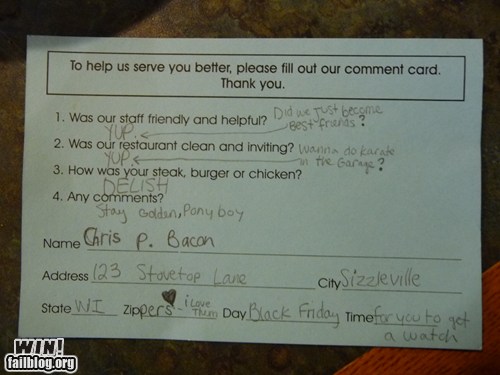 To help us serve you better, please fill out our comment card.
Thank you.
1. Was our staff friendly and helpful? Did we Just become
Best friends?
YUP.
2. Was our restaurant clean and inviting? Wanna do karate
in the Garage?
YUP.
3. How was your steak, burger or chicken?
DELISH
4. Any comments?
Stay Golden, Pony boy
Name Chris P. Bacon
Address 123 Stovetop Lane City Sizzleville
State WI Zippers - i Love Them Day Black Friday Time for you to get
a watch
WIN!
failblog.org